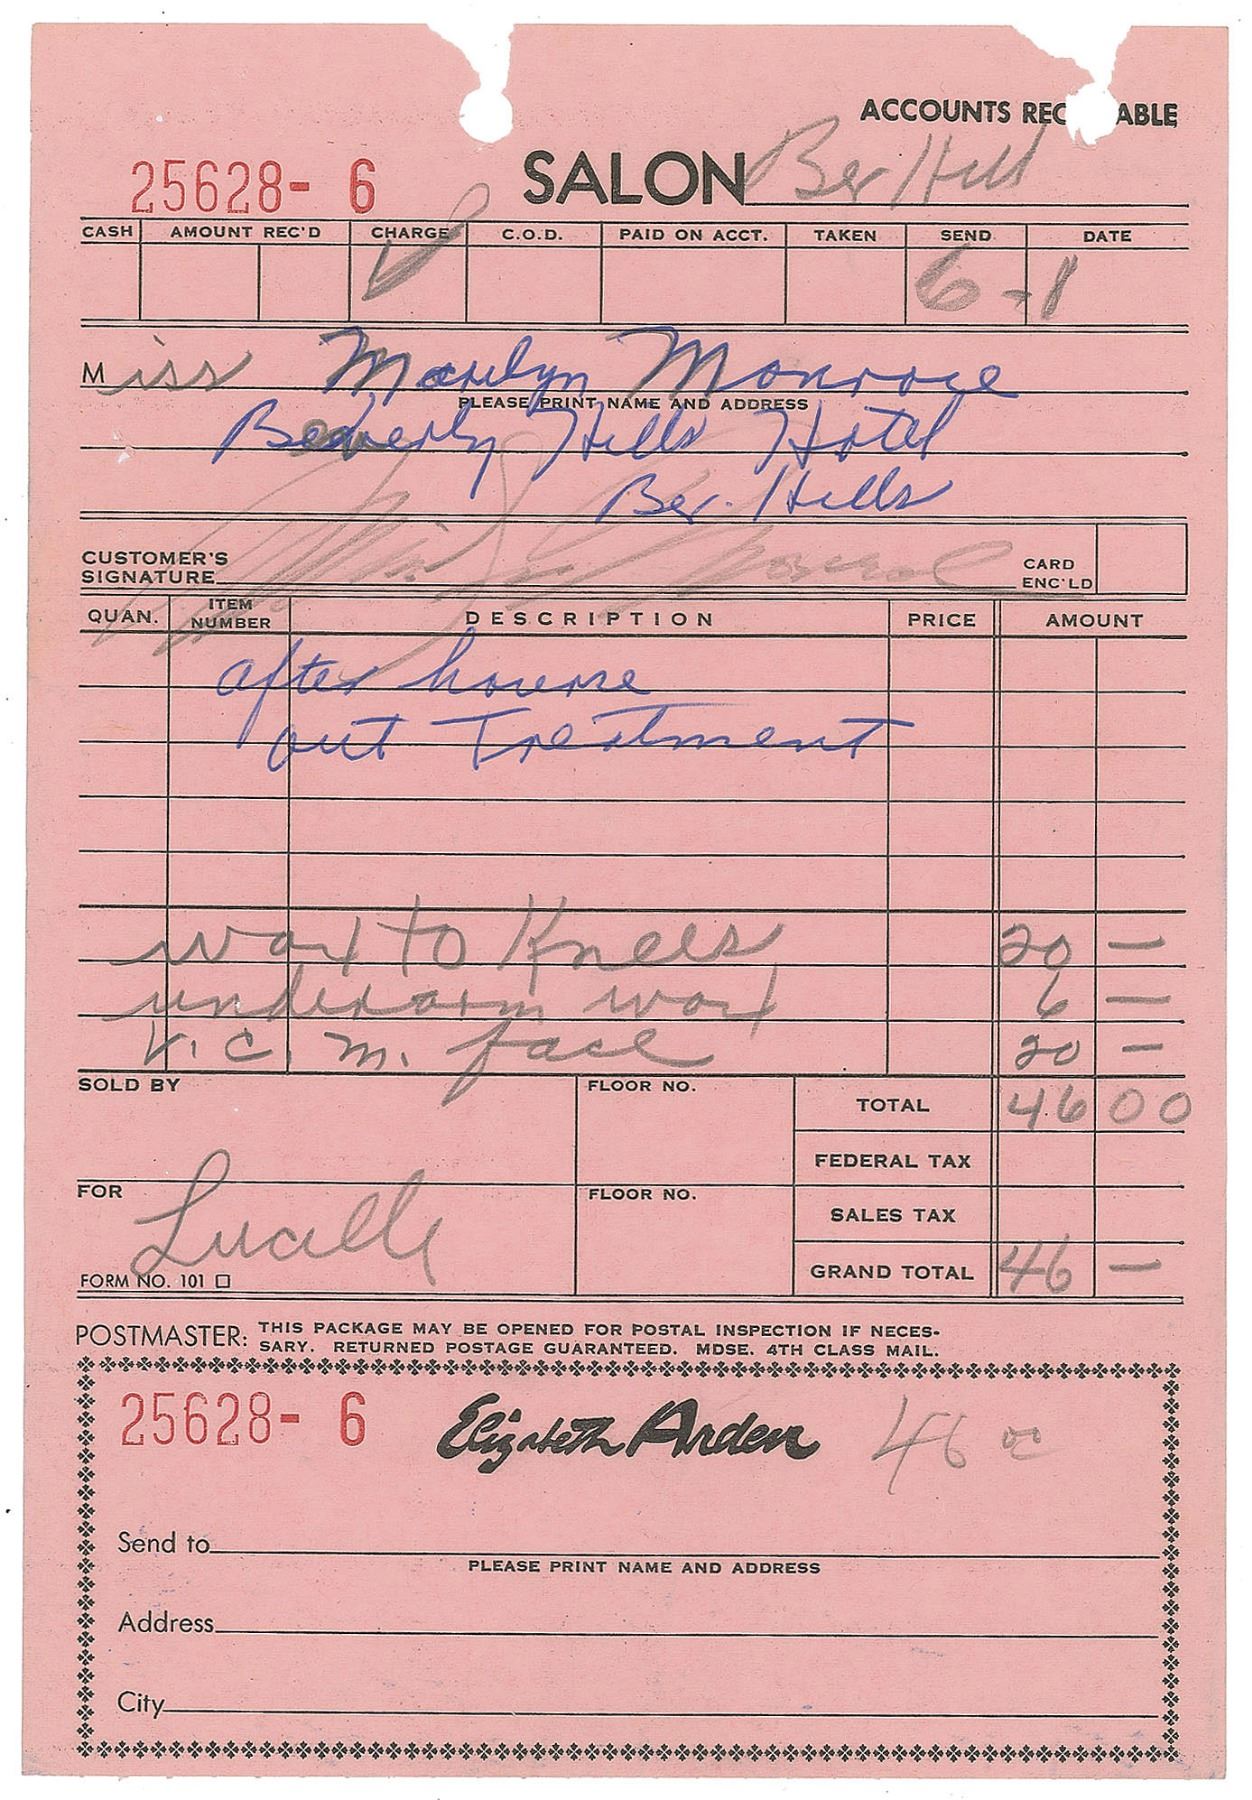 ACCOUNTS REC ABLE
25628- 6 SALON Bev Hill
CASH AMOUNT REC'D CHARGE C.O.D. PAID ON ACCT. TAKEN SEND DATE
6-1
Miss Marilyn Monroe
PLEASE PRINT NAME AND ADDRESS
Beverly Hills Hotel
Bev. Hills
CUSTOMER'S
SIGNATURE
CARD
ENC'LD
QUAN. ITEM NUMBER DESCRIPTION PRICE AMOUNT
after
out Treatment
wax to Knees 20 —
underarm wax 6 —
V. C. M. face 20 —
SOLD BY FLOOR NO. TOTAL 46 00
FEDERAL TAX
FOR FLOOR NO. SALES TAX
Lucille
FORM NO. 101 GRAND TOTAL 46 —
POSTMASTER: THIS PACKAGE MAY BE OPENED FOR POSTAL INSPECTION IF NECES-
SARY. RETURNED POSTAGE GUARANTEED. MDSE. 4TH CLASS MAIL.
25628- 6 Elizabeth Arden 46 00
Send to
PLEASE PRINT NAME AND ADDRESS
Address
City